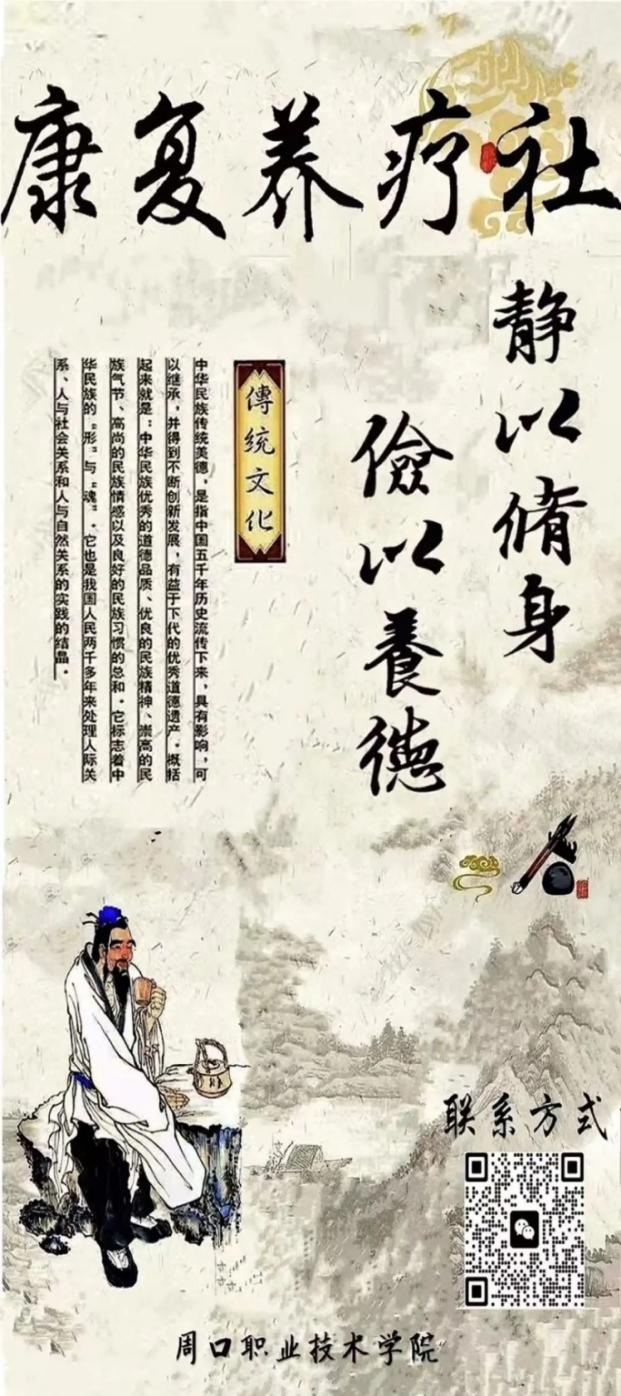 康复养疗社
静以脩身
儉以養德
傳統文化
中华民族传统美德，是指中国五千年历史流传下来，具有影响，可
以继承，并得到不断创新发展，有益于下代的优秀道德遗产。概括
起来就是：中华民族优秀的道德品质、优良的民族精神、崇高的民
族气节、高尚的民族情感以及良好的民族习惯的总和。它标志着中
华民族的“形”与“魂”。它也是我国人民两千多年来处理人际关
系、人与社会关系和人与自然关系的实践的结晶。
联系方式
周口职业技术学院